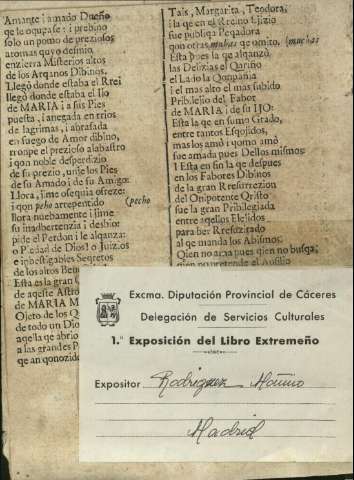 Amante i amado Dueño
qe le ocupase: i previno
solo un pomo de preziosos
aromas quyo desinio
enzierra Misterios altos
de los Arqanos Dibinos.
Llegò donde estaba el Rei
llegò donde estaba el Ijo
de MARIA i a sus Pies
puesta, i anegada en rios
de lagrimas, i abrasada
en fuego de Amor dibino,
rompe el prezioso alabastro
i qon noble desperdizio
de su prezio, unje los Pies
de su Amado i de su Amigo:
Llora, i ime osequia ofreze:
i qon pcho arrepentido (pecho
llora nuebamente i jime
su inadbertenzia i desbio:
pide el Perdon i le alqanza:
o Piedad de Dios! o Juizios
e inbestigables Seqretos
de los altos
Esta es la gran
de aqeste Astro
de MARIA M
Ojeto de los Q
de todo un Dio
aqella qe abrio
a las grandes P
an qonozido
Tais, Margarita, Teodora,
i la qe en el Reino Ejizio
fue publiqa Peqadora
qon otras muhas qe omito. (muchas
Esta pues la qe alqanzò
las Delizias el Qariño
el Lado la Qonpañia
i el mas alto el mas subido
Pribilejio del Fabor
de MARIA i de su IJO:
Esta la qe en sumo Grado,
entre tantos Esqojidos,
mas los amò i qomo amò
fue amada pues Dellos mismos:
I Esta en fin la qe despues
en los Fabores Dibinos
de la gran Resurrezion
del Onipotente Qristo
fue la gran Pribilegiada
entre aqellos Elejidos
para ber Resuzitado
al qe manda los Abismos:
Qien no ama pues qien no busqa;
qien no pretende el Ausilio
Excma. Diputación Provincial de Cáceres
Delegación de Servicios Culturales
1.ª Exposición del Libro Extremeño
Expositor Rodriguez Moñino
Madrid